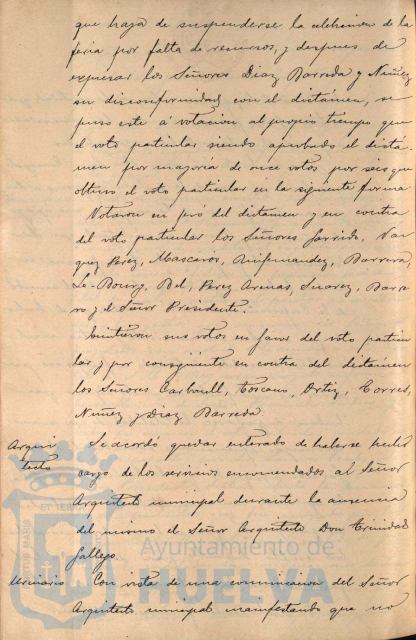 que haya de suspenderse la celebracion de la
feria por falta de recursos, y despues de
expresar los Señores Diaz Barreda y Nuñez
su disconformidad con el dictámen, se
puso este á votacion al propio tiempo que
el voto particular siendo aprobado el dictá-
men por mayoría de once votos por seis que
obtuvo el voto particular en la siguiente forma
Votaron en pró del dictamen y en contra
del voto particular los Señores Garrido, Vaz-
quez Perez, Mascaros, Barrera,
Le-Bourg, Bel, Perez Arenas, Suarez, Barre-
ro y el Señor Presidente.
Emitieron sus votos en favor del voto particu-
lar y por consiguiente en contra del dictámen
los Señores Carbonell, Toscano, Ortiz, Torres,
Nuñez y Diaz Barreda.
Arqui
tecto
Se acordó quedar enterado de haberse hecho
cargo de los servicios encomendados al Señor
Arquitecto municipal durante la ausencia
del mismo el Señor Arquitecto Don Trinidad
Gallego.
Con vista de una comunicacion del Señor
Arquitecto municipal manifestando que no
Ayuntamiento de
HUELVA